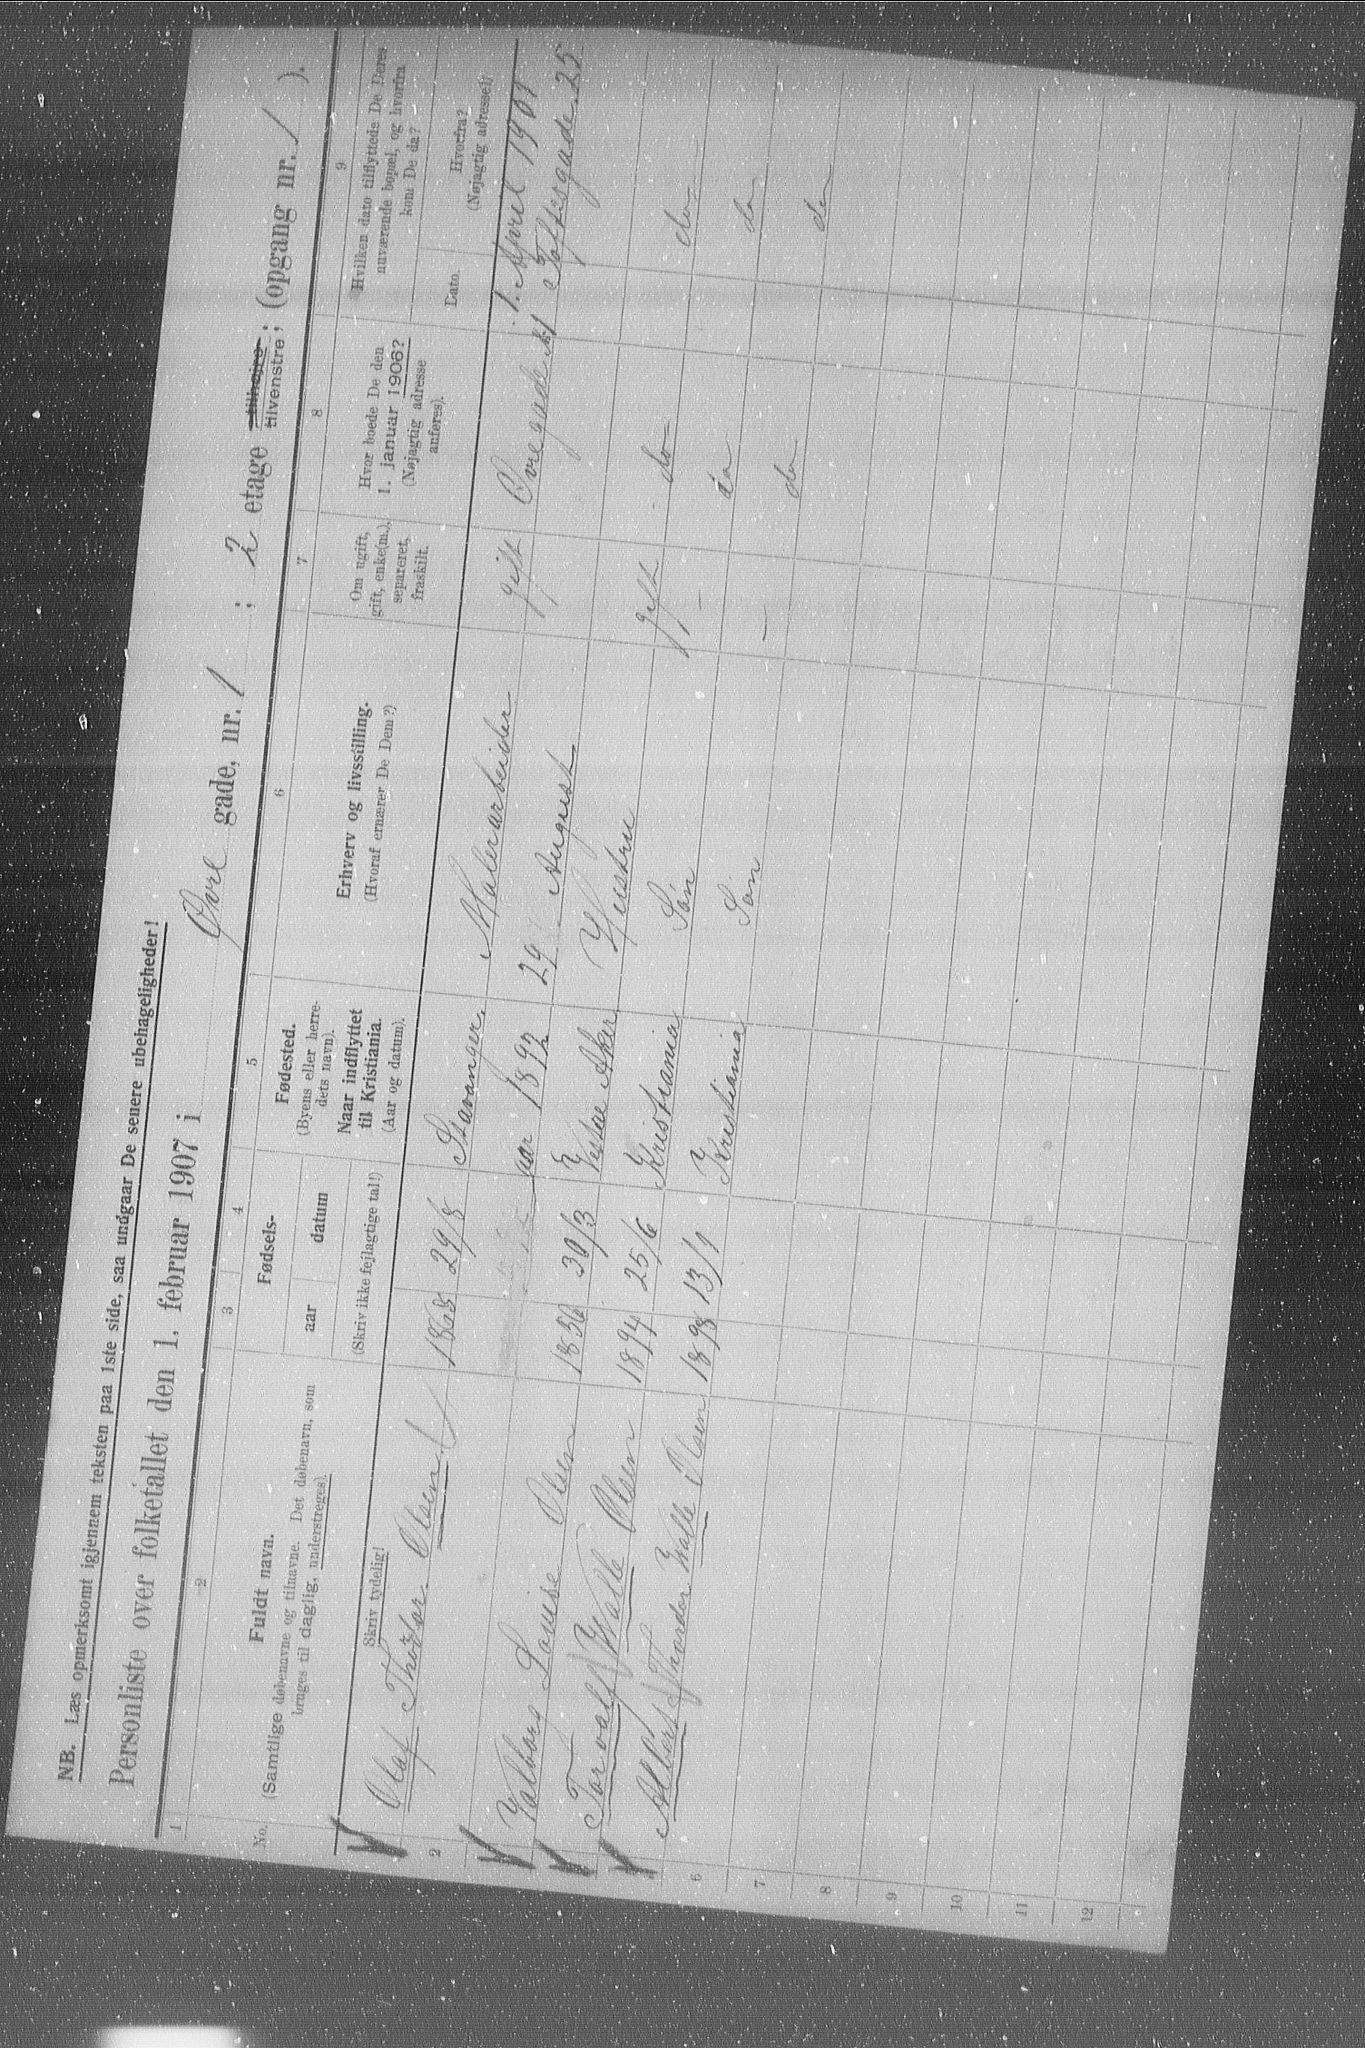 NB. Læs opmerksomt igjennem teksten paa 1ste side, saa undgaar De senere ubehageligheder!
Personliste over folketallet den 1. februar 1907 i Øvre gade, nr. 1 ; 2 etage tilhøjre, tilvenstre, (opgang nr. 1 ).
1 2 3 4 5 6 7 8 9
No.
Fuldt navn.
(Samtlige døbenavne og tilnavne. Det døbenavn, som
bruges til daglig, understreges).
Skriv tydelig!
Fødsels-
aar datum
(Skriv ikke fejlagtige tal!)
Fødested.
(Byens eller herre-
dets navn).
Naar indflyttet
til Kristiania.
(Aar og datum).
Erhverv og livsstilling.
(Hvoraf ernærer De Dem?)
Om ugift,
gift, enke(m.),
separeret,
fraskilt.
Hvor boede De den
1. januar 1906?
(Nøjagtig adresse
anføres).
Hvilken dato tilflyttede De Deres
nuværende bopæl, og hvorfra
kom De da?
Dato.
Hvorfra?
(Nøjagtig adresse!)
Olaf Olsen 1865 29/8 Stavanger. Malerarbeider gift Øvregade 1 1. April 1901
2 aar 1892 29 August Toftesgade 25
Valborg Louise Olsen 30/3 Vestre Aker Hustru gift do do
Torvalf Walle Olsen 1894 25/6 Kristiania Søn - do do
Albert Thordor Walle Olsen 1898 13/1 Kristiania Søn - do do
6
7
8
9
10
11
12